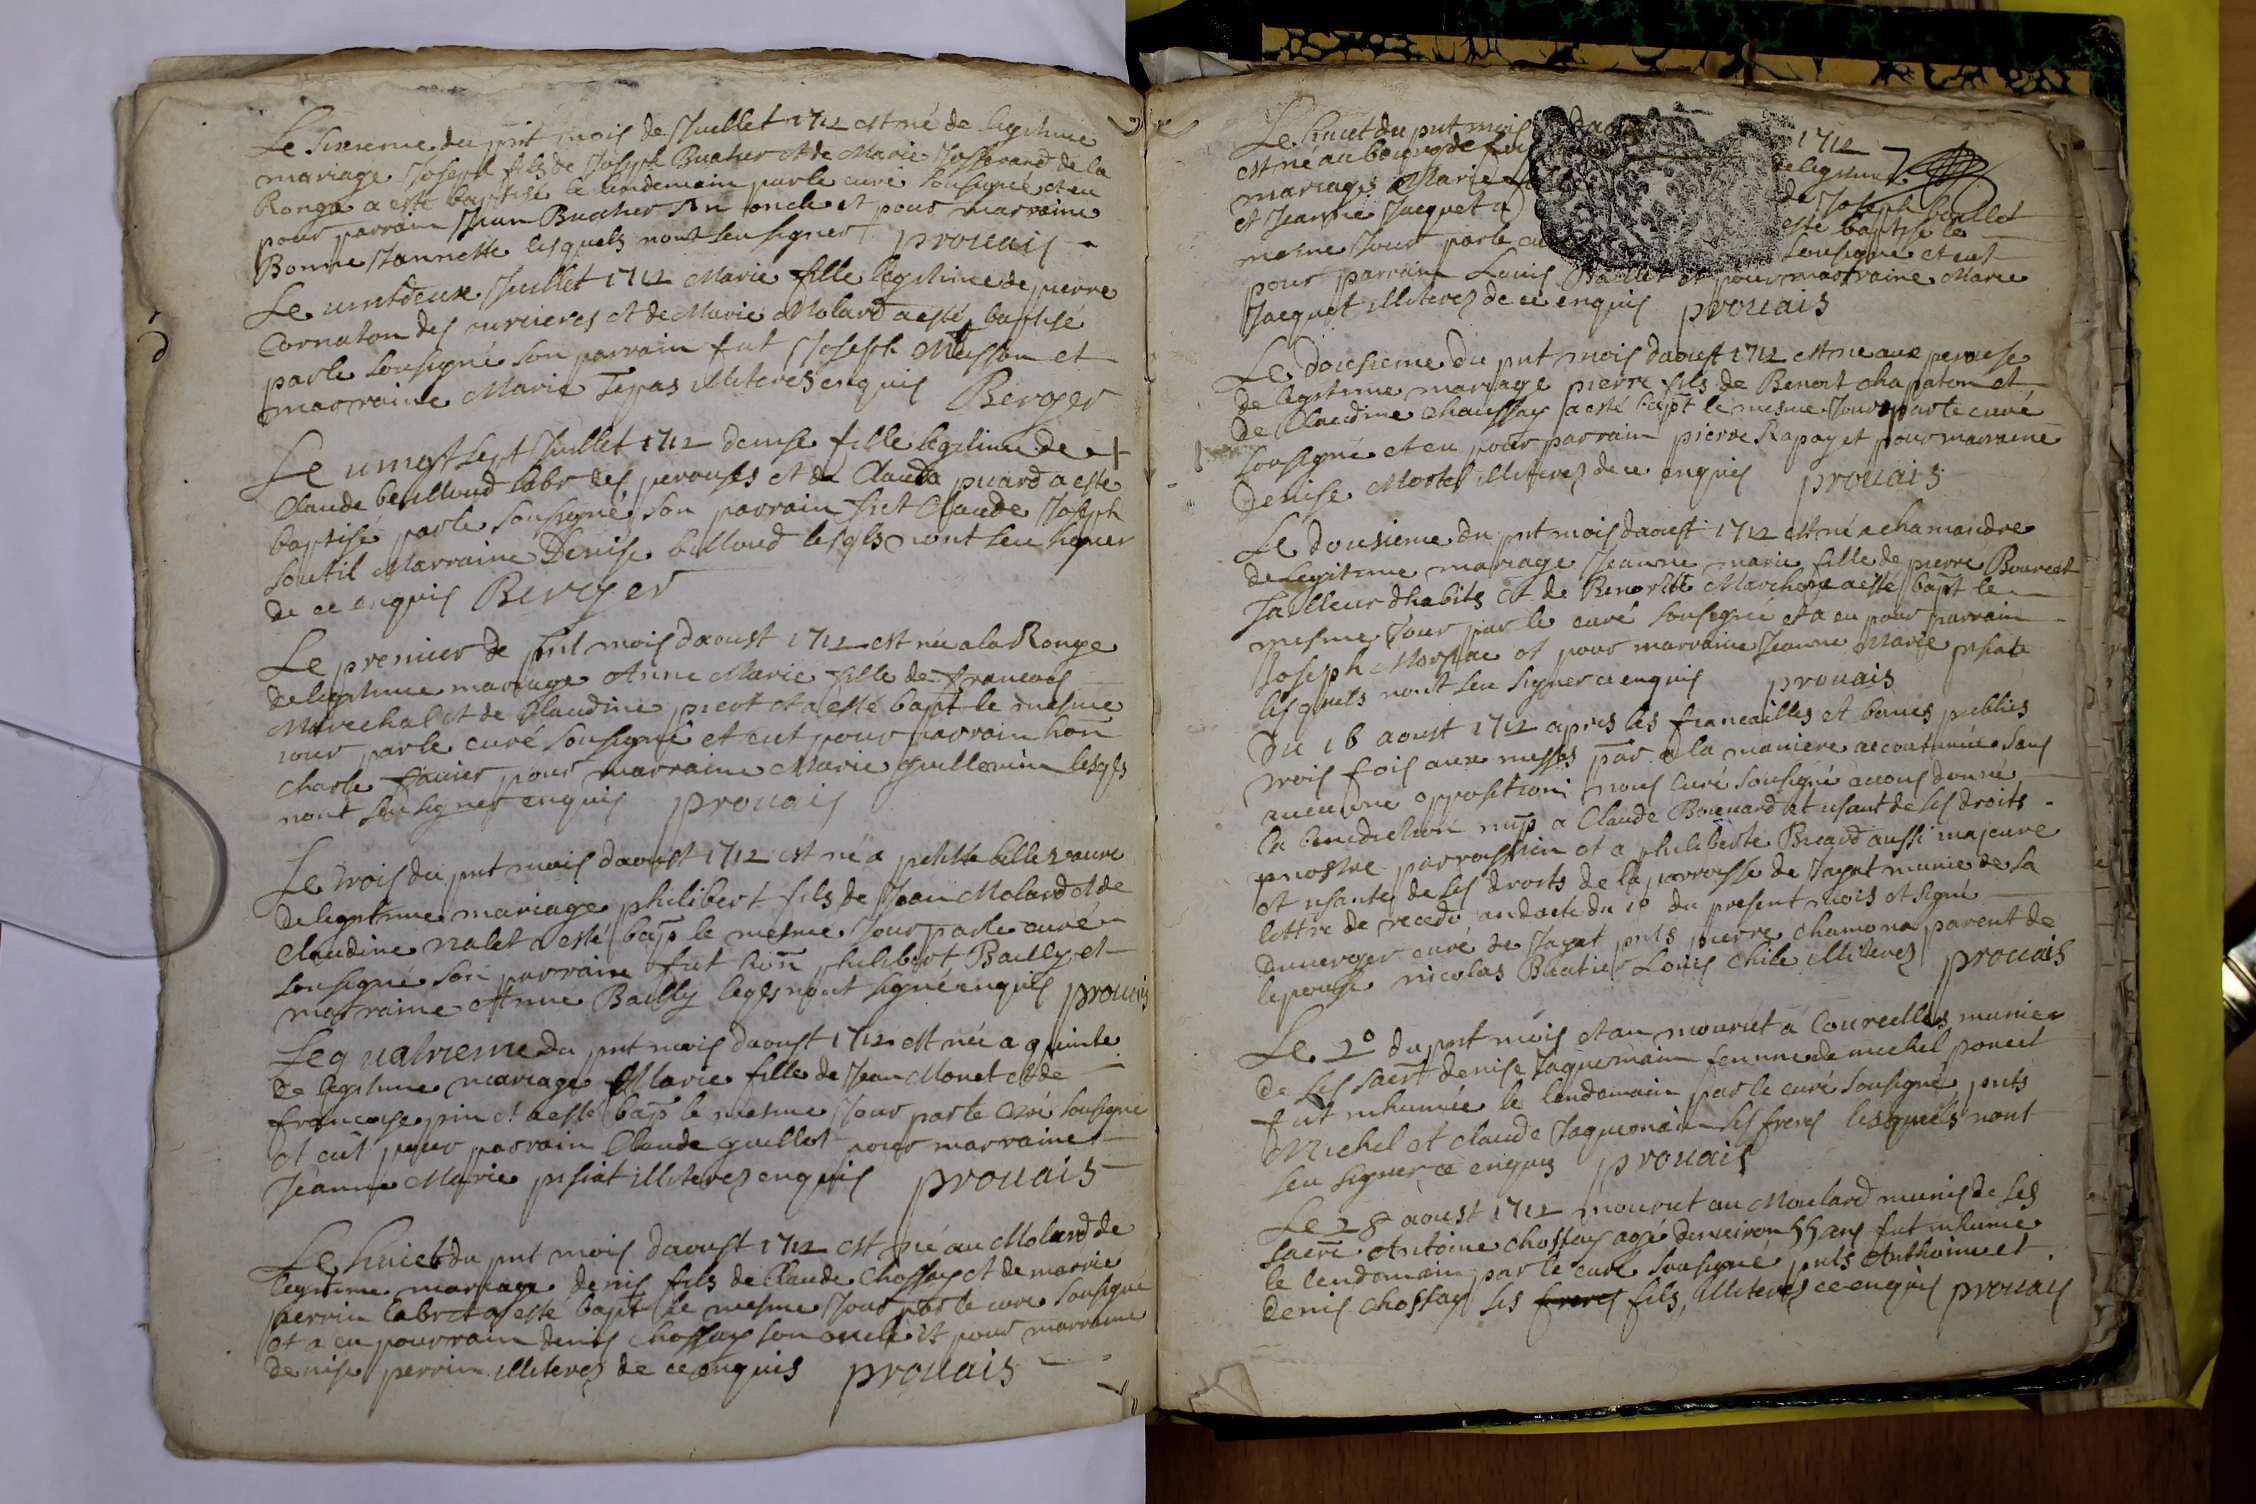 Le sixieme du pnt mois de Juillet 1712 est né de legitime
mariage Joseph fils de Joseph Buatier et de Marie Josserand de la
Ronge a esté baptisé le lendemain par le curé sousigné et eu
pour parrain Jean Buatier son oncle et pour marraine
Bonne Jannette lesquels nont seu signer prouais
Le vintdeux Juillet 1712 Marie fille legitime de pierre
Cornaton des et de Marie Molard a esté baptisé
par le sousigné son parrain fut Joseph Musson et
marraine Marie Tepas illiterez enquis Beroger
Le vingt sept Juillet 1712 denise fille legitime de
Claude beulloud labr des perouses et de Clauda puard a esté
baptisé par le sousigné son parrain fut Claude Joseph
soutil Marraine Denise billoud lesqls nont seu signer
de ce enquis Beroger
Le premier de pnt mois daoust 1712 est née a la Ronge
de legitime mariage Anne Marie fille de francois
Marechal et de Claudine picot et a esté bapt le mesme
iour par le curé sousigné et eut pour parrain hon
Charle favier pour marraine Marie guillemin lesqls
nont seu signer enquis prouais
Le trois du pnt mois daoust 1712 est né a petitte belle vavre
de legitime mariage philibert fils de Jean Molard et de
Claudine nalet a esté bap le mesme Jour par le curé
sousigné son parrain fut hon philibert Bailly et
marraine Anne Bailly leqls nont signé enquis prouais
Le quatrieme du pnt mois daoust 1712 est née a quinte
de legitime mariage Marie fille de Jean Monet et de
francoise pin et a esté bap le mesme Jour par le Curé sousigné
et eut pour parrain Claude guillot pour marraine
Jeanne Marie psiat illiterez enquis prouais
Le huict du pnt mois daoust 1712 est né au Molard de
legitime mariage denis fils de Claude Chossay et de marie
perrin labr et a esté bapt le mesme Jour par le curé sousigné
et a eu pour rain denis Chossay son oncle et pour marraine
denise perrin illiterez de ce enquis prouais
Le huict du pnt mois daoust 1712
est né au bourg de legitime
mariage Marie de Joseph baillet
et Jeanne Jacquet a esté baptisé le
mesme Jour par le curé sousigné et eut
pour parrain Louis Baillet et pour marraine Marie
Jacquet illiterez de ce enquis prouais
Le dousieme du pnt mois daoust 1712 est né aux perouse
de legitime mariage pierre fils de Benoit chapaton et
de Claudine chaussay a esté bapt le mesme Jour par le curé
sousigné et eu pour parrain pierre Rapay et pour marraine
Denise Mortel illiterez de ce enquis prouais
Le dousieme du pnt mois daoust 1712 est né a chamandre
de legitime mariage Jeanne marie fille de pierre Bourcet
Tailleur dhabits et de Benoitte Marchou a esté bapt le
mesme Jour par le curé sousigné et a eu pour parrain
Joseph Morzac et pour marraine Jeanne Marie psiat
lesquels nont seu signer ce enquis prouais
Du 16 aoust 1712 apres les fiancailles et bancs publiés
trois fois aux messes par a la maniere accoutumée sans
aucune opposition nous curé sousigné avons donné
la benediction nup a Claude Bouvard et usant de ses droits
nostre parroissien et a philiberte Bicard aussi majeure
et usante de ses droits de la parroisse de Jayat munie de la
lettre de recedo en dacte du 10 du present mois et signé
duverger curé de Jayat pnts pierre Chamona parent de
lepouse nicolas Buatier Louis Chile illiterez prouais
Le 2º du pnt mois et an mourut a Courcelles munie
de ses sacrt denise Jaquemain femme de michel poncet
fut inhumée le lendemain par le curé sousigné pnts
Michel et claude Jaquemain ses freres lesquels nont
seu signer ce enquis prouais
Le 28 aoust 1712 mourut au Moulard munis de ses
sacre Antoine Chossay agé denviron 55 ans fut inhumé
le lendemain par le curé sousigné pnts Anthoine et
denis Chossay ses freres fils illiterez ce enquis prouais